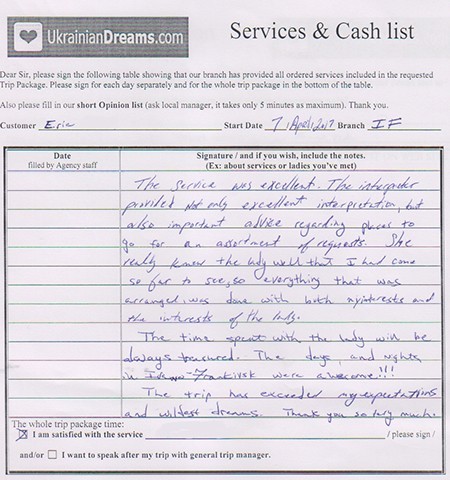 UkrainianDreams.com
Services & Cash list
Dear Sir, please sign the following table showing that our branch has provided all ordered services included in the requested
Trip Package. Please sign for each day separately and for the whole trip package in the bottom of the table.
Also please fill in our short Opinion list (ask local manager, it takes only 5 minutes as maximum). Thank you.
Customer Eric Start Date 7, April, 2017 Branch IF
Date Signature / and if you wish, include the notes.
filled by Agency staff (Ex: about services or ladies you've met)
The service was excellent. The interpreter
provided not only excellent interpretation, but
also important advice regarding places to
go for an assortment of requests. She
really knew the lady well that I had come
so far to see, so everything that was
arranged, was done with both my interests and
the interests of the lady.
The time spent with the lady will be
always treasured. The days, and nights
in Ivano-Frankivsk were awesome!!!
The trip has exceeded my expectations
and wildest dreams. Thank you so very much.
The whole trip package time:
I am satisfied with the service / please sign /
and/or I want to speak after my trip with general trip manager.